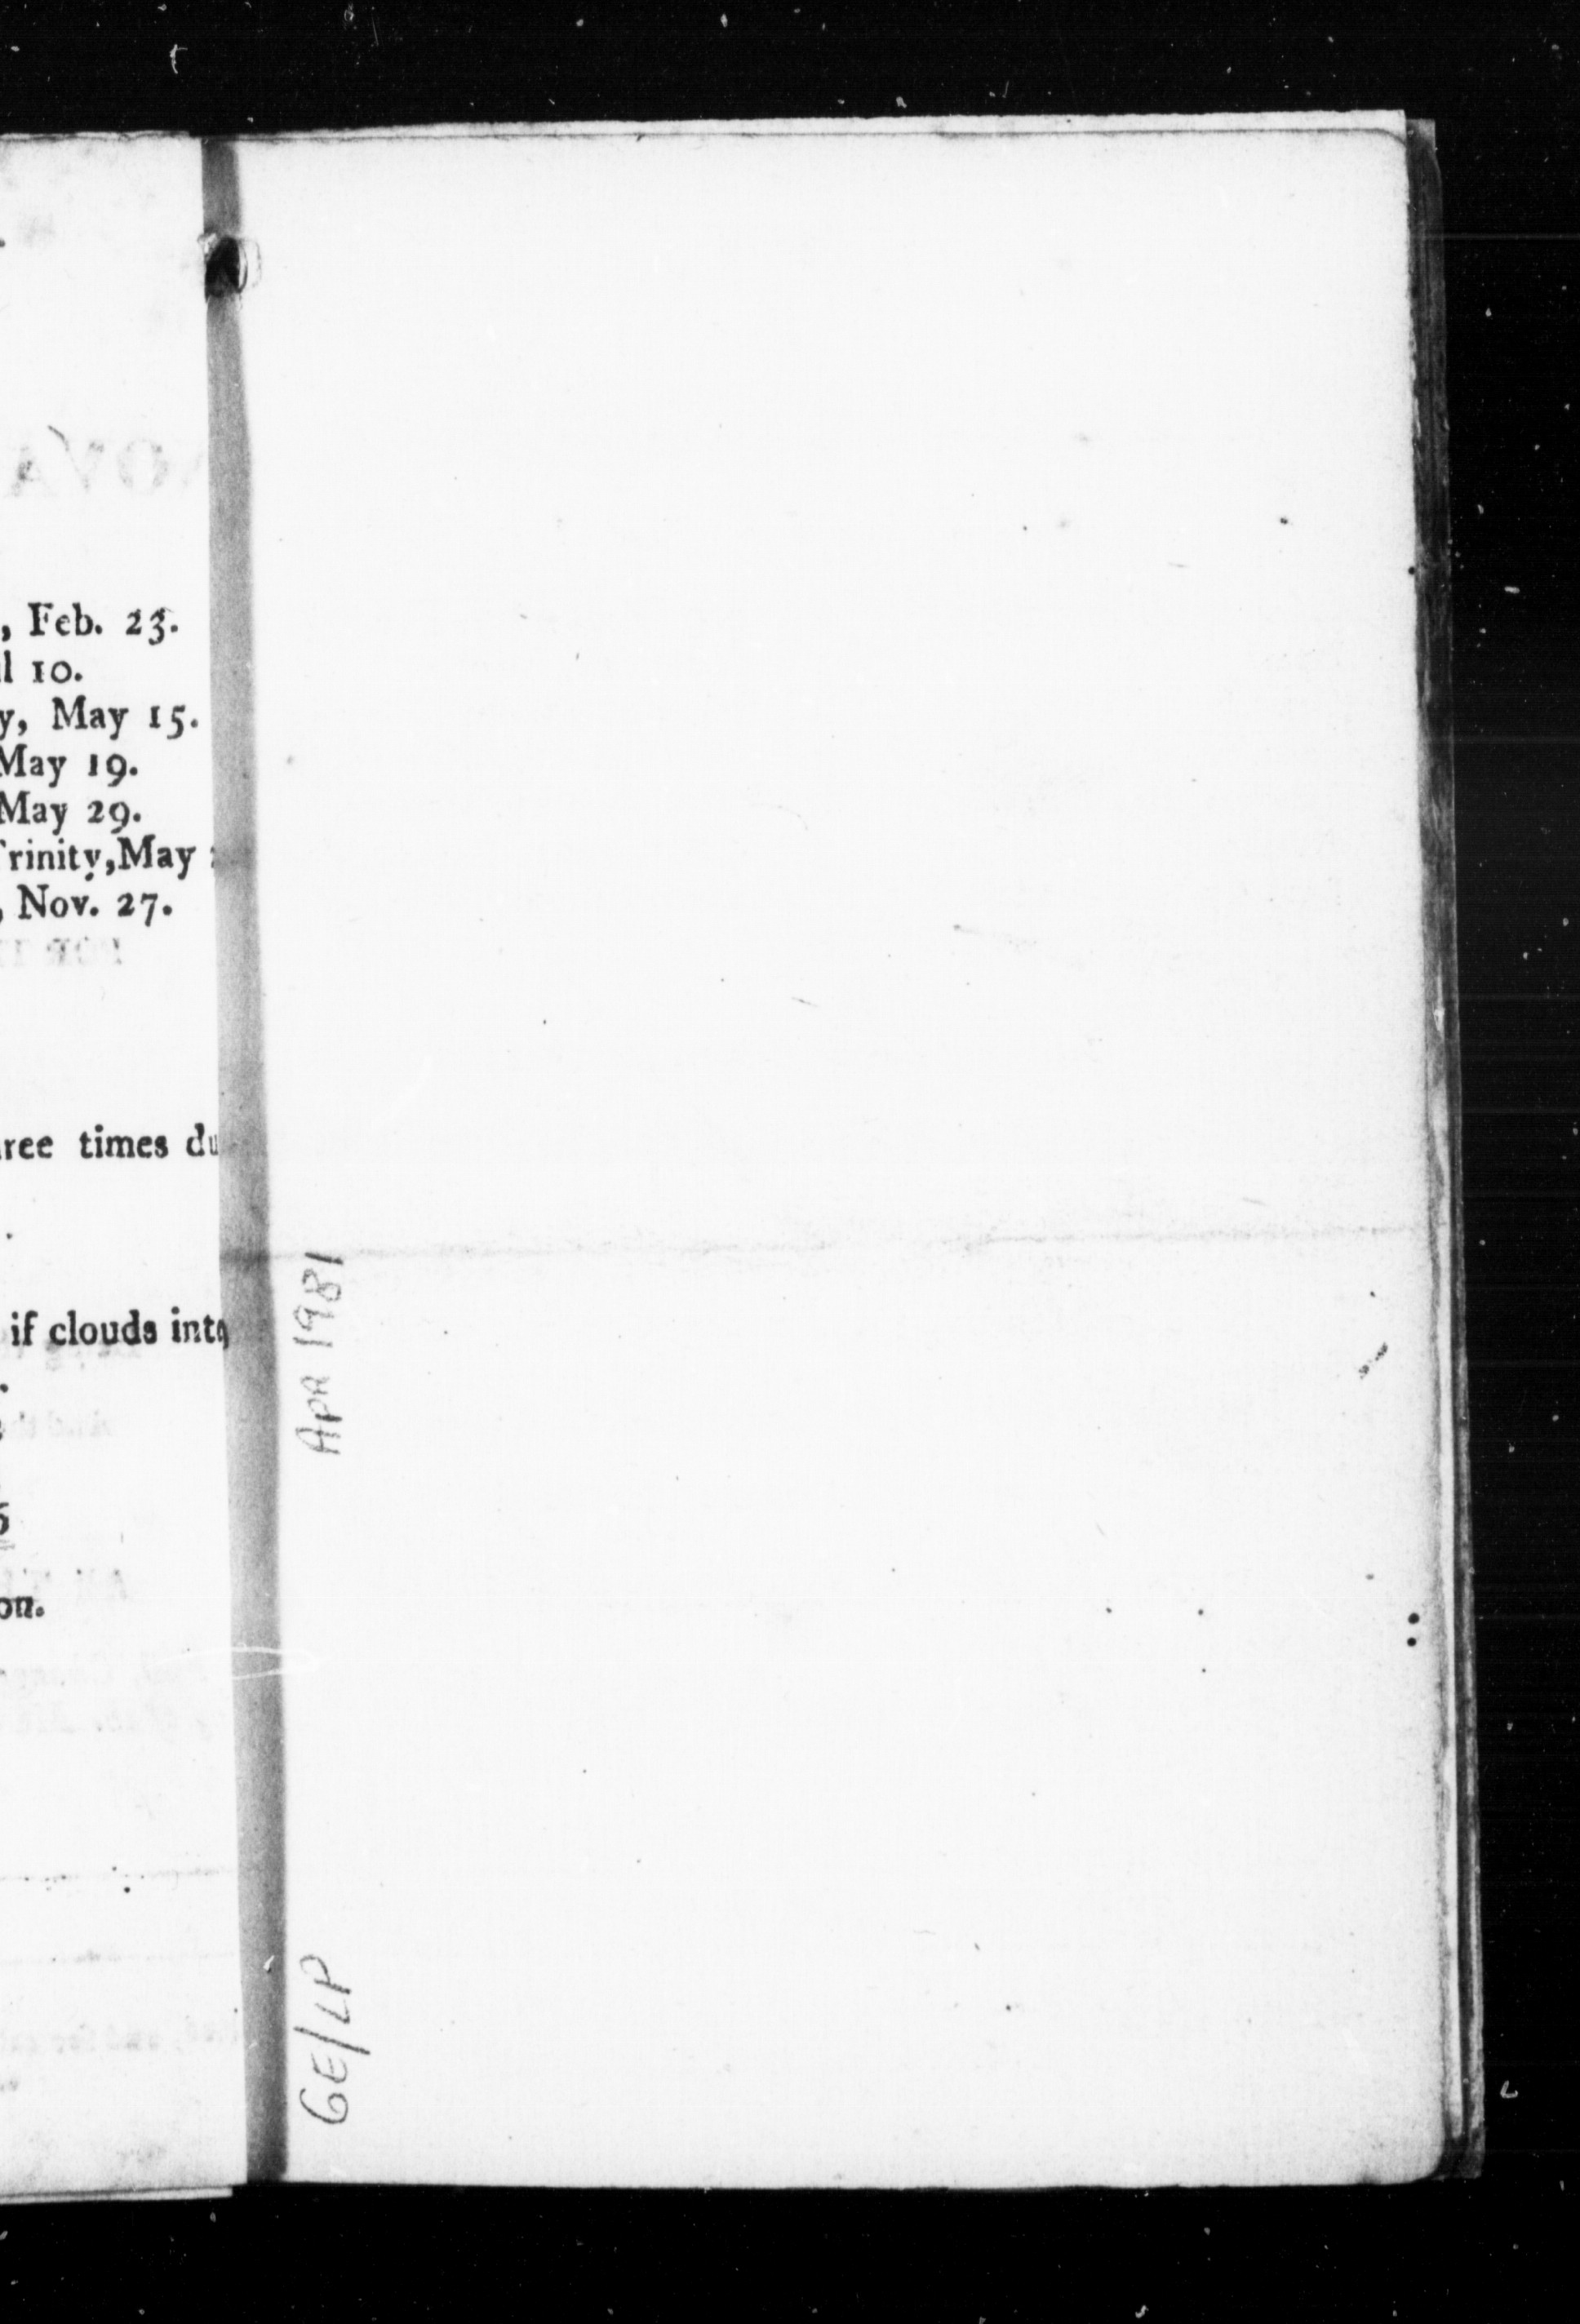 , Feb. 23.
10.
y, May 15.
May 19.
May 29.
Trinity,May
, Nov. 27.
times du
if clouds inte
on.
APR 1981
GE/LP